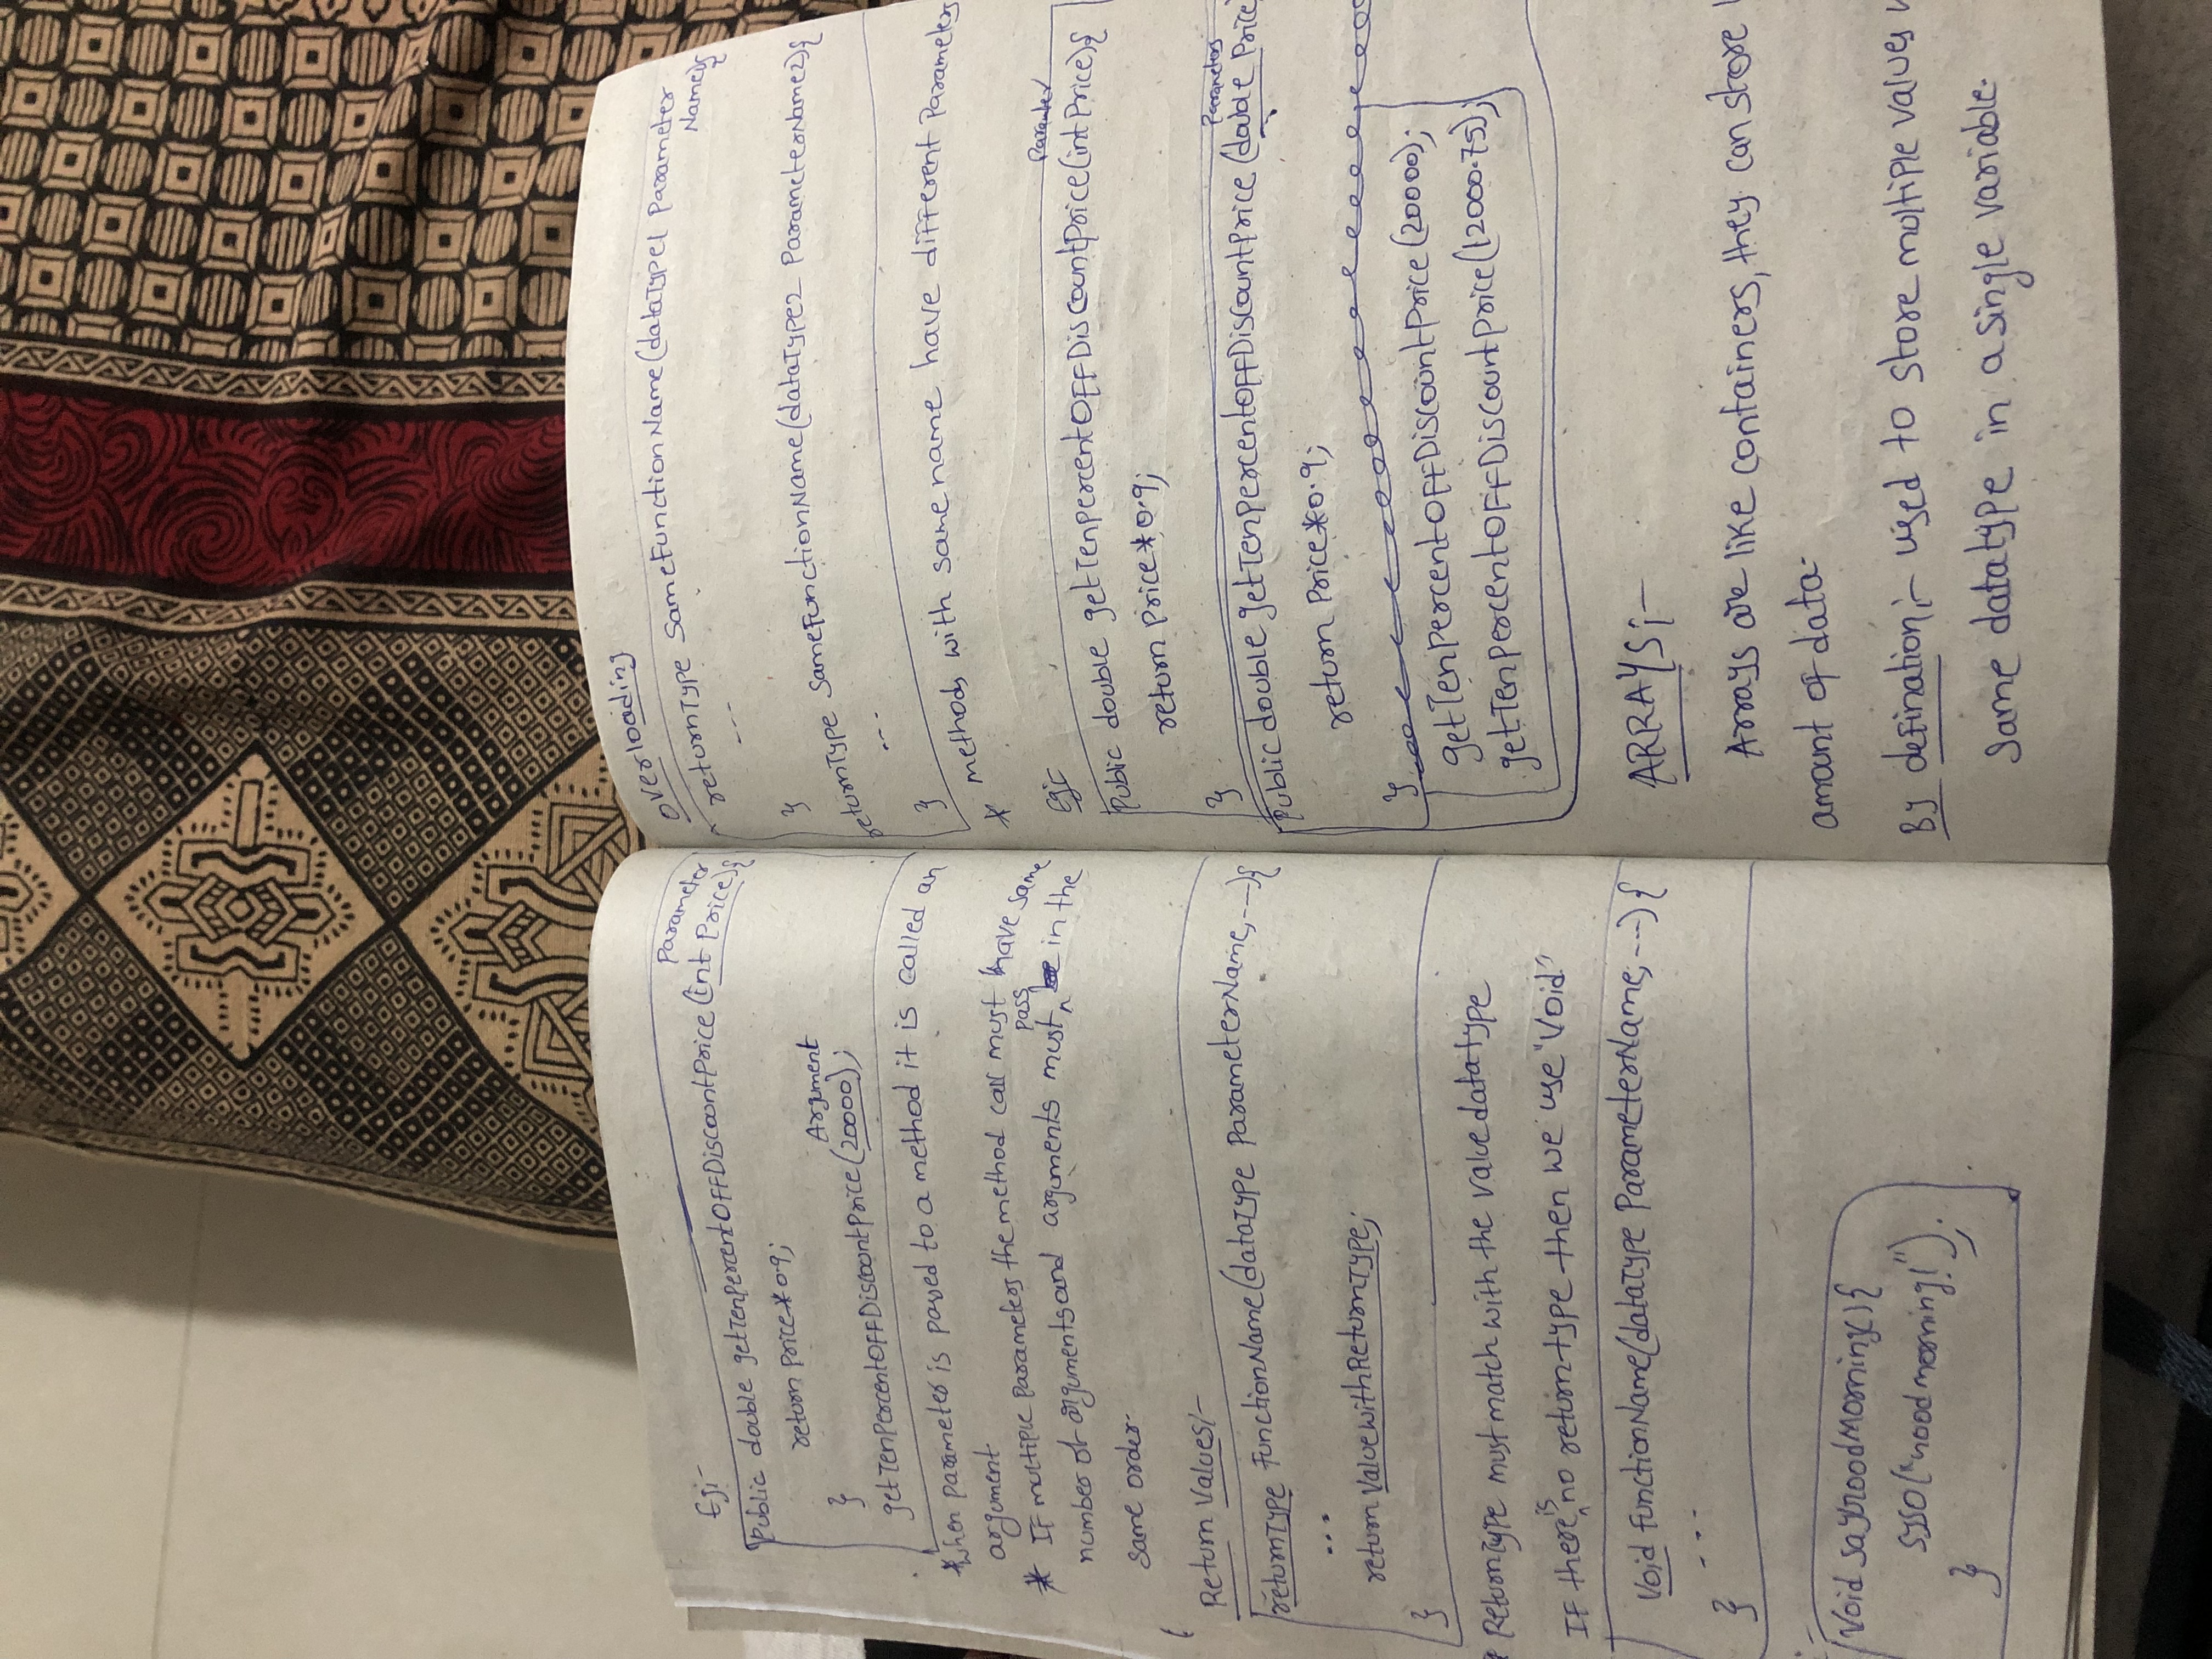 Eg:-
Parameter
Public double getTenPercentOFFDiscountPrice(int Price){
return Price*0.9;
}
Argument
getTenPercentOFFDiscountPrice(20000);
*when parameter is passed to a method it is called an
argument
* IF multiple Parameters the method call must have same
number of arguments and arguments must pass in the
same order.
Return Values:-
returnType FunctionName(dataType ParameterName,---){
...
return ValueWithReturnType;
}
* ReturnType must match with the value datatype
IF there is no return type then we use "Void"
Void functionName(dataType ParameterName, ---) {
---
}
Void sayGoodMorning(){
SYSO("Good morning!");
}
Overloading
returnType SameFunctionName(dataType1 Parameter
Name){
---
}
returnType SameFunctionName(dataType2 ParameterName2){
---
}
* methods with same name have different Parameters
Eg:-
Parameter
Public double getTenPercentOFFDisCountPrice(int Price){
return Price*0.9;
}
Parameters
Public double getTenPercentOFFDisCountPrice (double Price
return Price*0.9;
}
getTenPercentOFFDisCountPrice(20000);
getTenPercentOFFDisCountPrice(12000.75);
ARRAYS:-
Arrays are like containers, they can store
amount of data.
By defination:- used to store multiple values
Same datatype in a single variable.